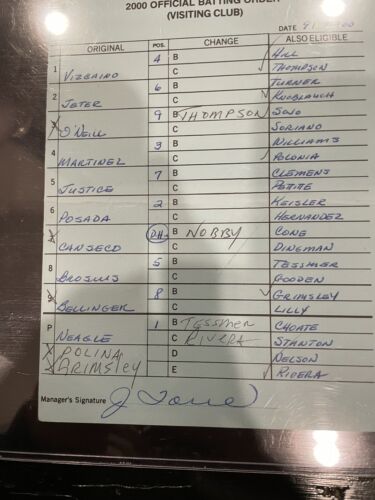 2000 OFFICIAL BATTING ORDER
(VISITING CLUB)
DATE 9
ORIGINAL POS. CHANGE ALSO ELIGIBLE
4 B HILL
1 VIZCAINO C THOMPSON
6 B TURNER
2 JETER C KNOBLAUCH
9 B THOMPSON SOJO
3 O'NEILL C SORIANO
3 B WILLIAMS
4 MARTINEZ C POLONIA
7 B CLEMENS
5 JUSTICE C PETITE
2 B KEISLER
6 POSADA C HERNANDEZ
DH B NOBBY CONE
7 CANSECO C DINGMAN
5 B TESSMER
8 BROSIUS C GOODEN
8 B GRIMSLEY
9 BELLINGER C LILLY
1 B TESSMER CHOATE
P NEAGLE C RIVERA STANTON
POLINA D NELSON
GRIMSLEY E RIVERA
Manager's Signature J Torre